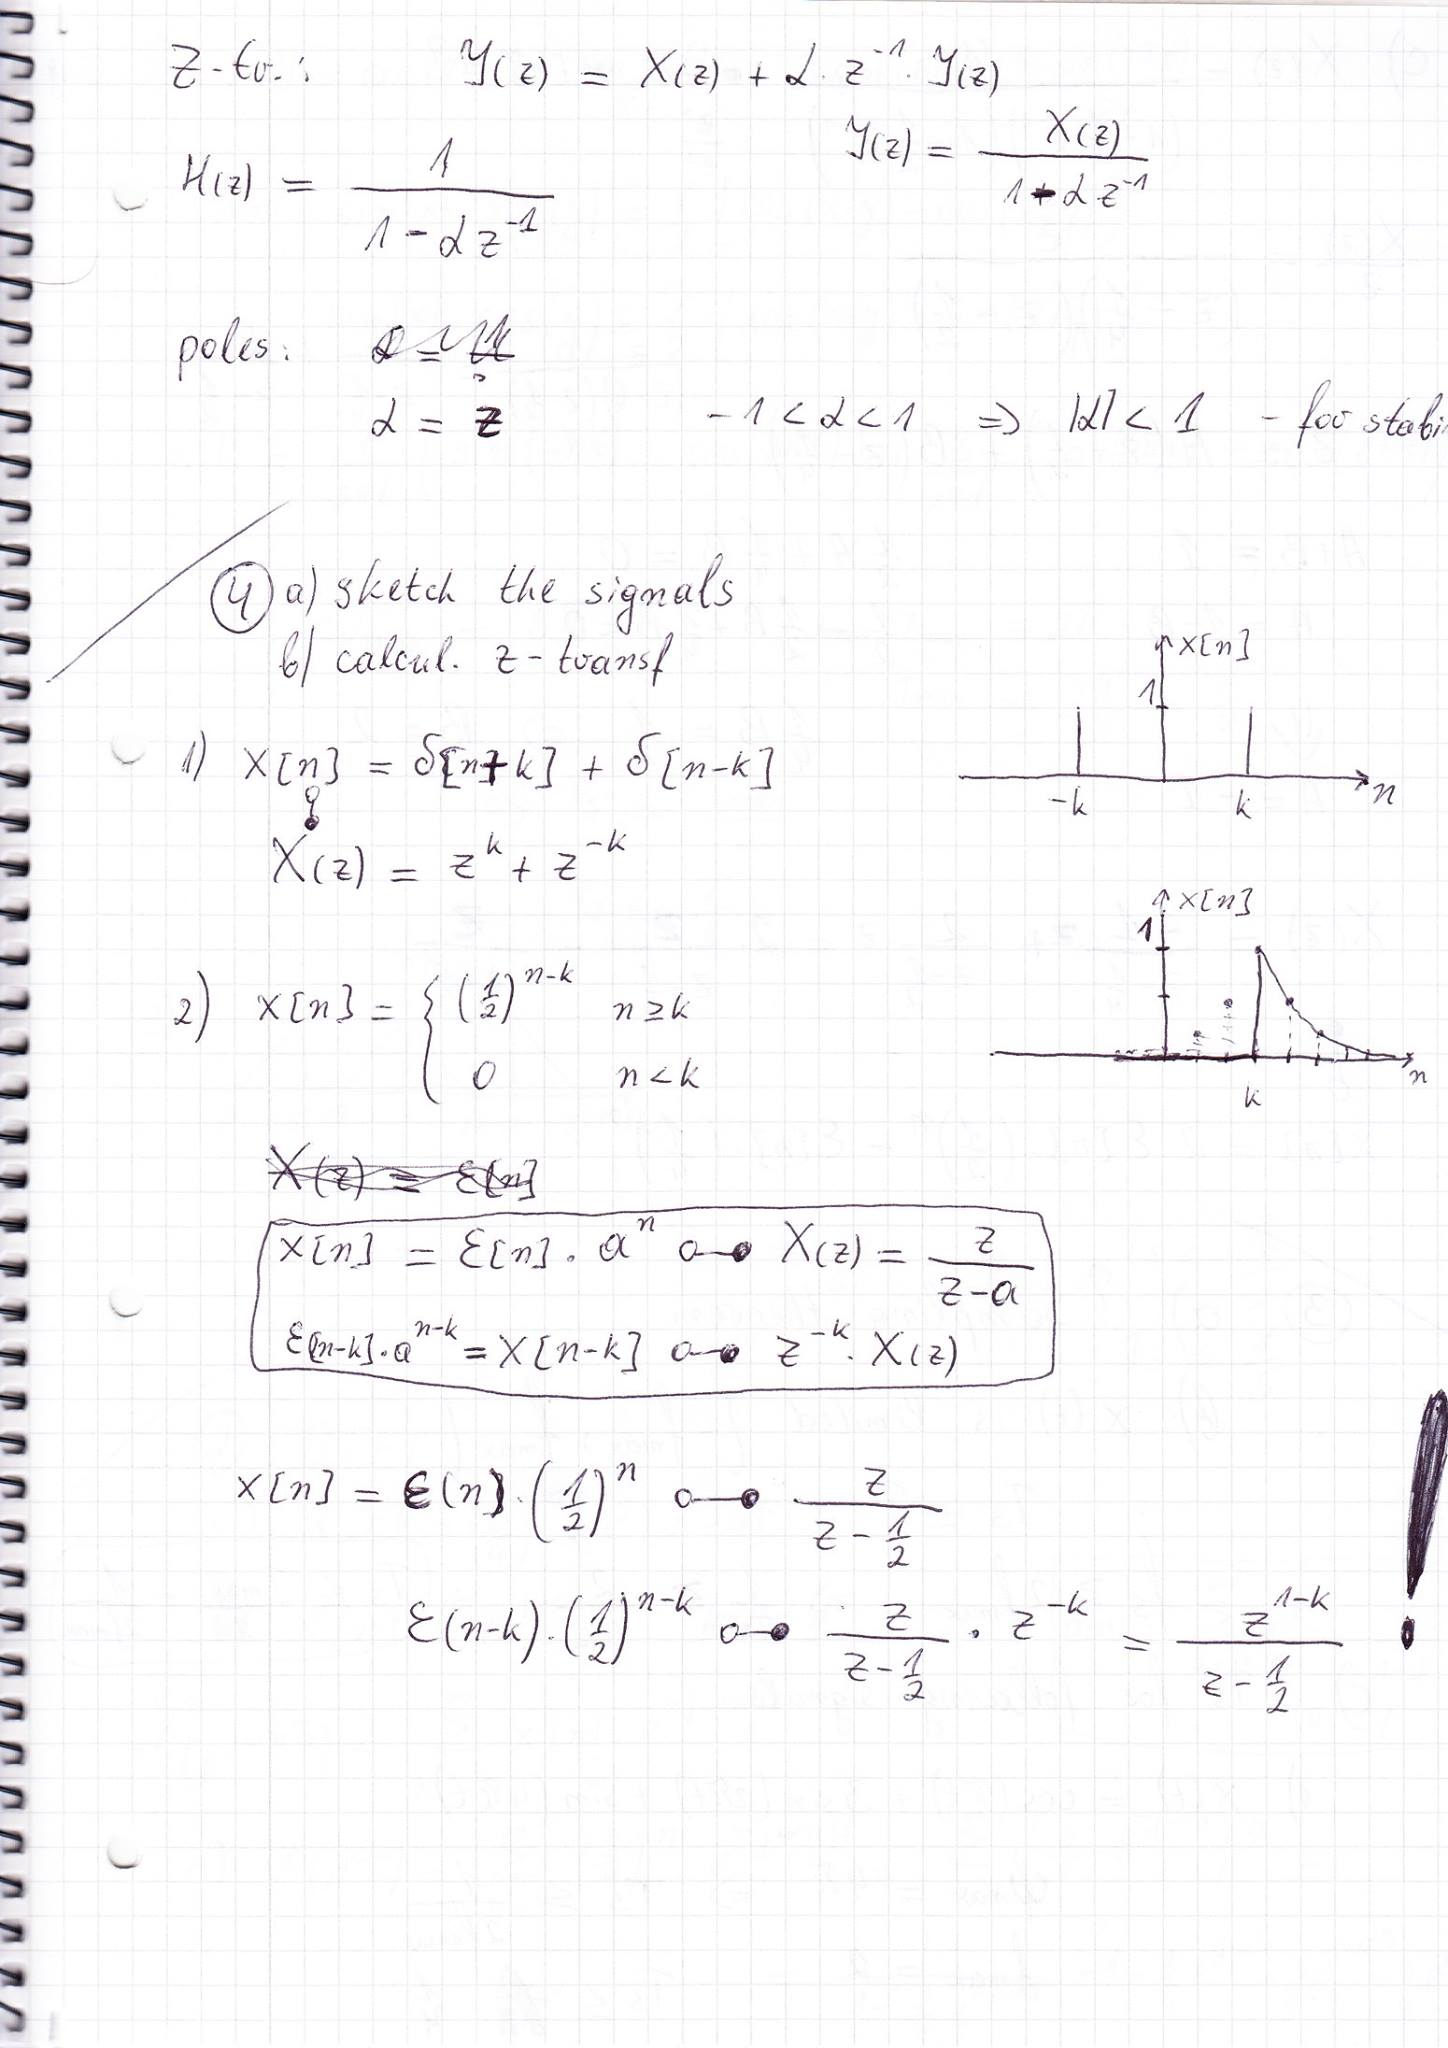 Z-tr.: Y(z) = X(z) + α · z⁻¹ · Y(z)
Y(z) = X(z) / (1 - α z⁻¹)
H(z) = 1 / (1 - α z⁻¹)
poles:
α = z -1 < α < 1 ⇒ |α| < 1 - for stabi
④ a) sketch the signals
b) calcul. z-transf
x[n]
1
-k k n
1) x[n] = δ[n+k] + δ[n-k]
X(z) = z^k + z^-k
x[n]
1
k n
2) x[n] = { (1/2)^(n-k) n ≥ k
0 n < k
X(z) = ε[n]
x[n] = ε[n] · a^n ○─● X(z) = z / (z-a)
ε[n-k] · a^(n-k) = x[n-k] ○─● z^-k · X(z)
x[n] = ε(n) · (1/2)^n ○─● z / (z - 1/2)
ε(n-k) · (1/2)^(n-k) ○─● z / (z - 1/2) · z^-k = z^(1-k) / (z - 1/2) !